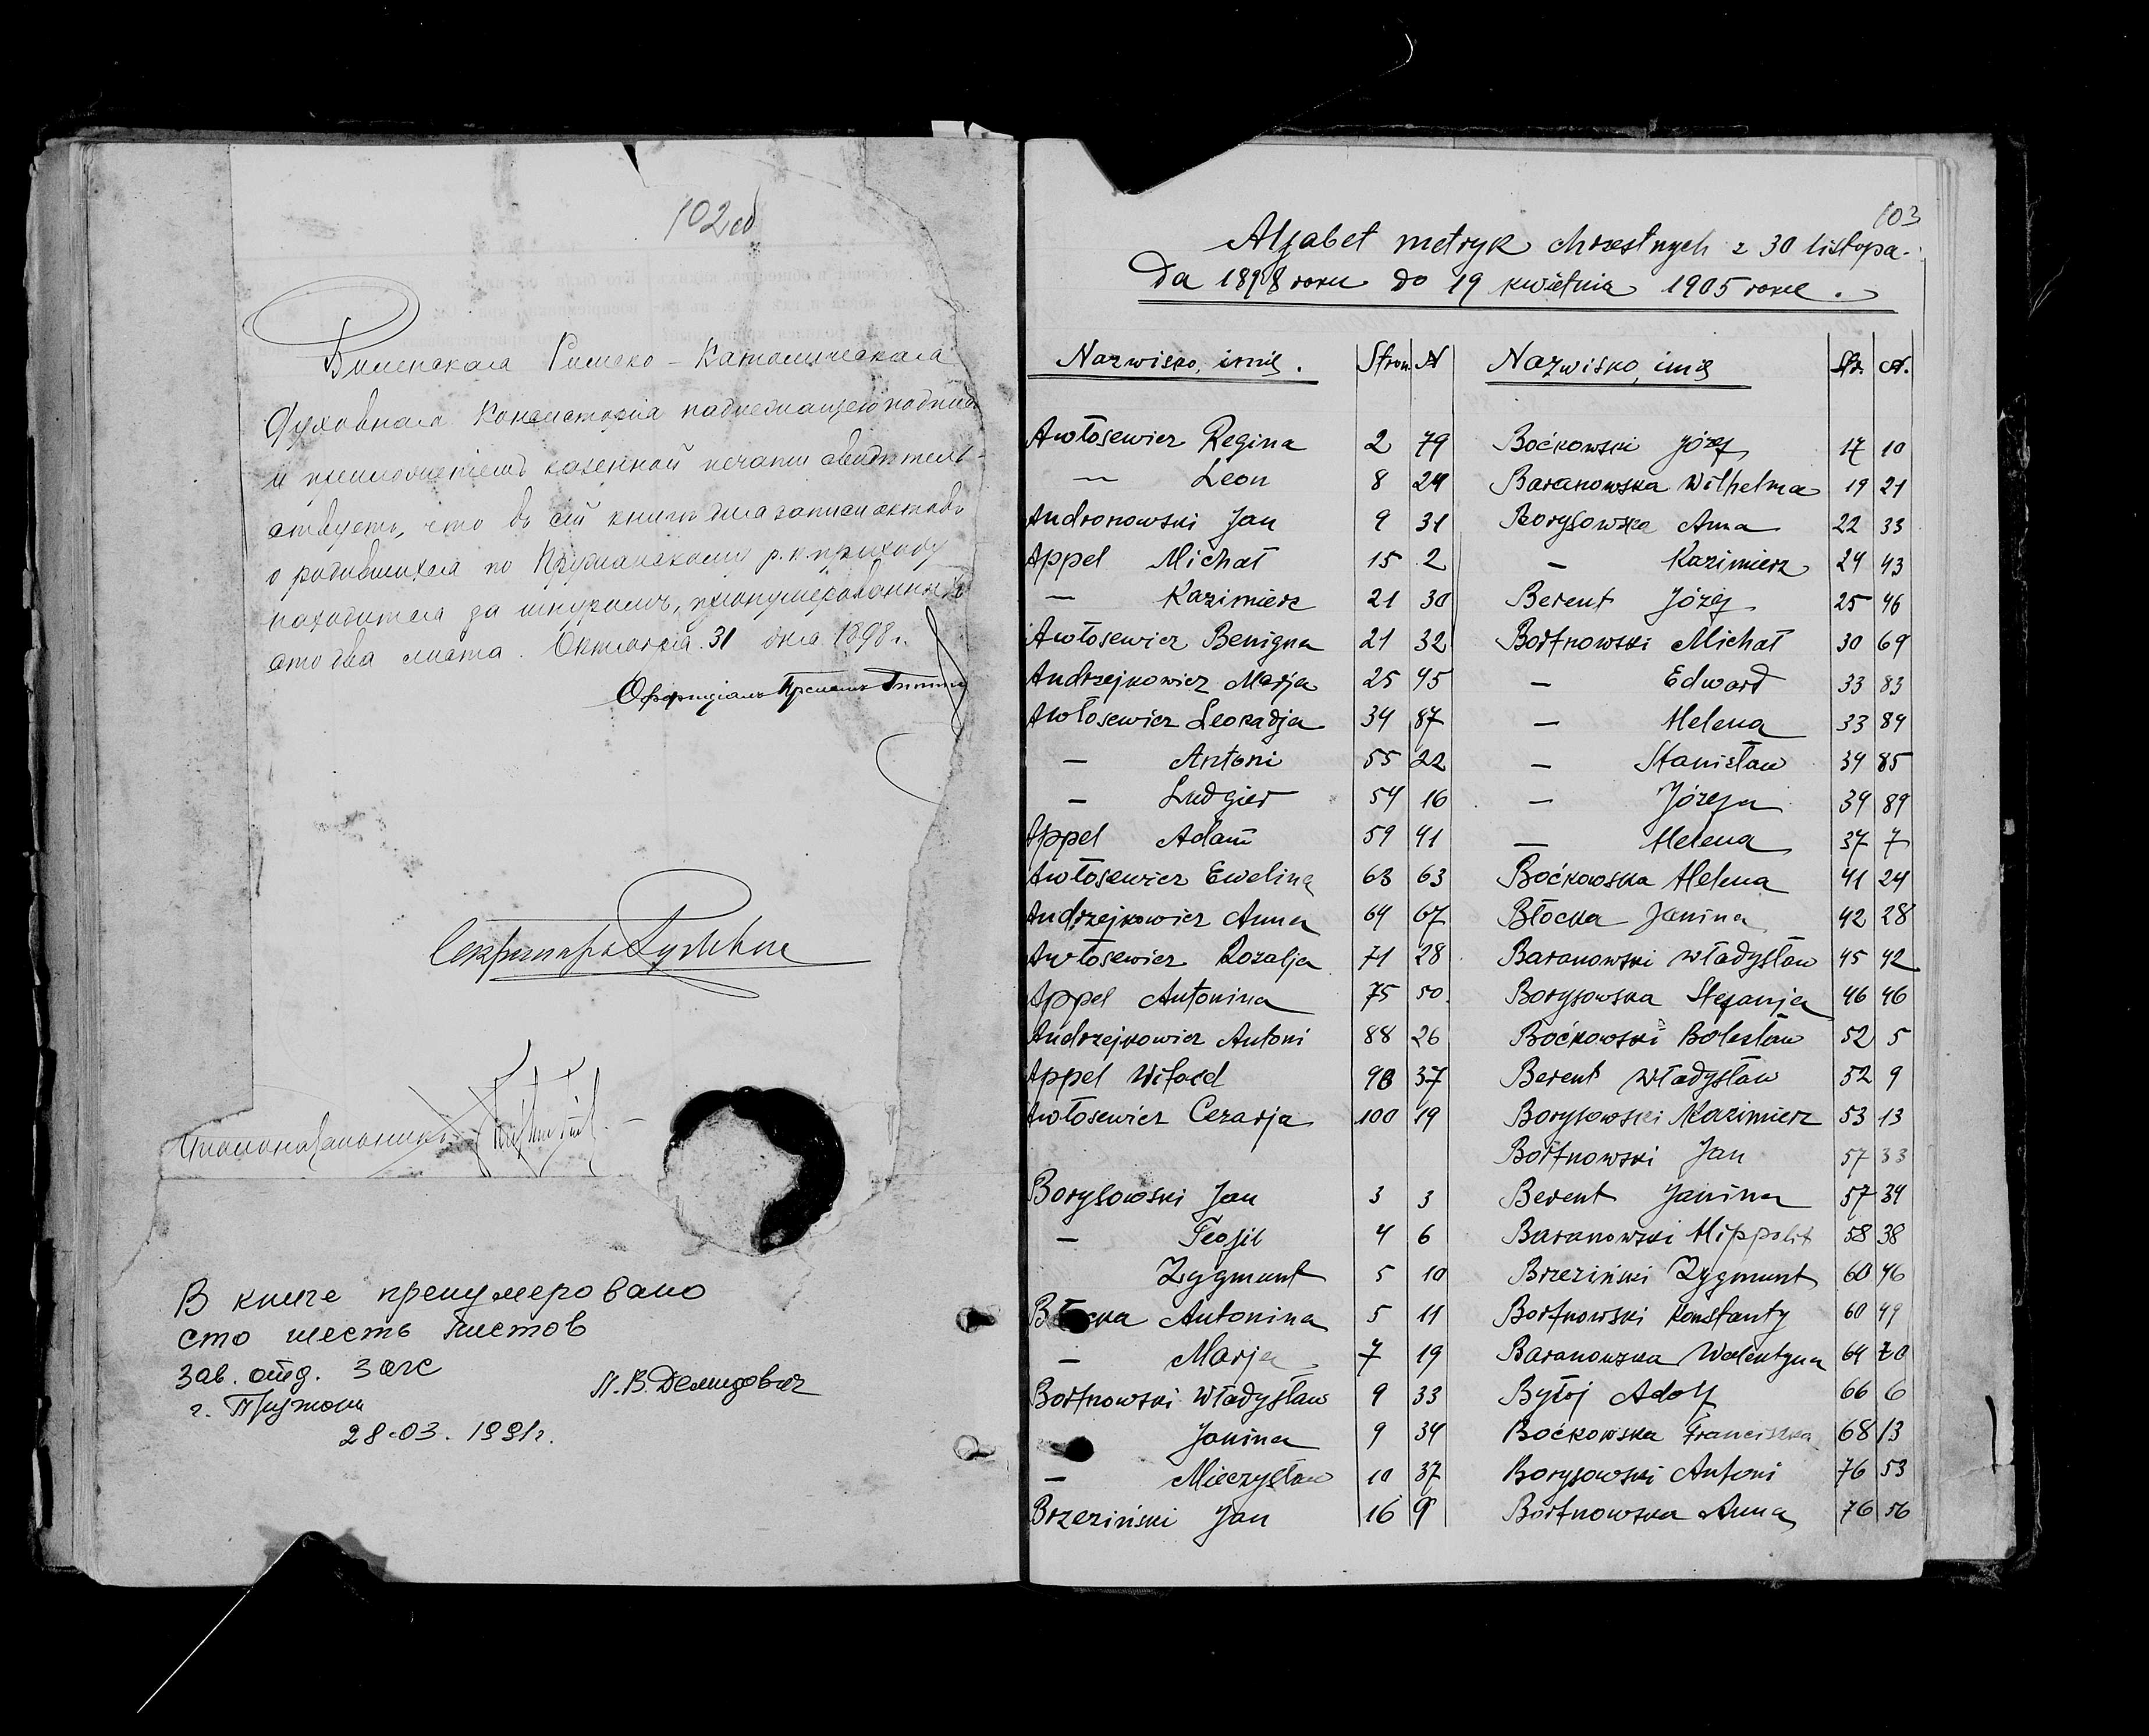 102 об
Виленская Римско-Католическая
Духовная Консисторія надлежащею подписью
и приложеніемъ казенной печати свидѣтель-
ствуетъ, что въ сей книгѣ для записи актовъ
о родившихся по Пружанскому р. к. приходу
находится за шнуромъ, пронумерованныхъ
сто два листа. Октября 31 дня 1898 г.
Секретарь
Столоначальникъ
В книге пренумеровано
сто шесть листов
Зав. отд. загс
г. Пружаны
Л. В. Демидович
28-03. 1991г.
103
Alfabet metryk chrzestnych z 30 listopa-
da 1898 roku do 19 kwietnia 1905 roku.
Nazwisko, imię. Stron. N Nazwisko, imię Str. N.
Awłosewicz Regina 2 79 Boćkowski Józef 17 10
— Leon 8 24 Baranowska Wilhelma 19 21
Andronowski Jan 9 31 Borysowska Anna 22 33
Appel Michał 15 2 — Kazimierz 24 43
— Kazimierz 21 30 Berent Józef 25 46
Awłosewicz Benigna 21 32 Bortnowski Michał 30 69
Andrzejkowicz Marja 25 45 — Edward 33 83
Awłosewicz Leokadja 34 87 — Helena 33 84
— Antoni 55 22 — Stanisław 34 85
— Ludgier 54 16 — Józefa 34 89
Appel Adam 59 41 — Helena 37 7
Awłosewicz Ewelina 63 63 Boćkowska Helena 41 24
Andrzejkowicz Anna 64 67 Błocka Janina 42 28
Awłosewicz Rozalja 71 28 Baranowski Władysław 45 42
Appel Antonina 75 50. Borysowska Stefanja 46 46
Andrzejkowicz Antoni 88 26 Boćkowski Bolesław 52 5
Appel Witold 90 37 Berent Władysław 52 9
Awłosewicz Cezarja 100 19 Borysowski Kazimierz 53 13
Bortnowski Jan 57 33
Borysowski Jan 3 3 Berent Janina 57 34
— Teofil 4 6 Baranowski Hippolit 58 38
Zygmunt 5 10 Brzeziński Zygmunt 60 46
Błocka Antonina 5 11 Bortnowski Konstanty 60 49
— Marja 7 19 Baranowska Walentyna 64 70
Bortnowski Władysław 9 33 Bytoj Adolf 66 6
Janina 9 34 Boćkowska Franciszka 68 13
— Mieczysław 10 37 Borysowski Antoni 76 53
Brzeziński Jan 16 9 Bortnowska Anna 76 56